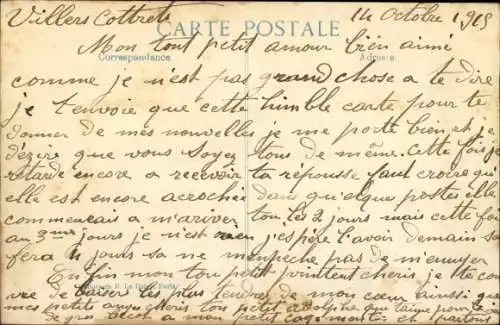 Villers Cottrets
14 Octobre 1915
CARTE POSTALE
Correspondance
Adresse
Mon tout petit amour bien aimé
comme je n'est pas grand chose a te dire
je t'envoie que cette humble carte pour te
donner de mes nouvelles je me porte bien et je
dézire que vous soyez tous de même. Cette fois je
retarde encore a recevoir ta réponse faut croire qu'
elle est encore acrochée dans quelques postes elle
commencais a m'arriver tou les 2 jours mais cette foi
au 3ème jours je n'est rien j'espère l'avoir demain sa
fera 4 jours sa ne m'empêche pas de m'ennuyer
Enfin mon tou petit printemt cheris je te cou
vre de baisers les plus tendres de mon cœur aussi que
mes petits anges cheris tou petit adolphe que j'aime pour la
de gros bécot a mon petit et partout